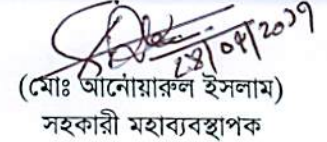 28/04/2019
(মোঃ আনোয়ারুল ইসলাম)
সহকারী মহাব্যবস্থাপক